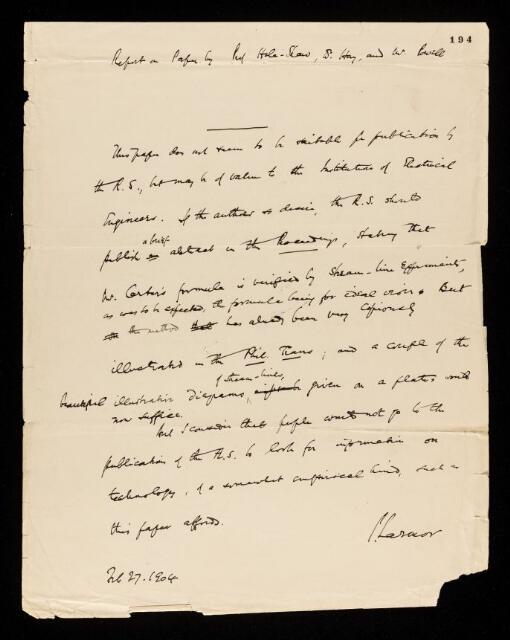 194
Report on Paper by Prof Hele-Shaw, D. Hay, and W. Powell
This paper does not seem to be suitable for publication by
the R.S., but may be of value to the Institution of Electrical
Engineers. If the authors so desire, the R.S. should
publish a brief abstract in the Proceedings, stating that
Mr. Carter's formula is verified by stream-line experiments,
as was to be expected, the formula being for ideal
the method has already been very copiously
illustrated in the Phil. Trans; and a couple of the
beautiful illustrative diagrams, of stream-lines, given on a plate will
now suffice.
But I consider that people would not go to the
publications of the R.S. to look for information on
technology, of a somewhat empirical kind, such as
this paper affords.
J Larmor
Feb 27. 1904